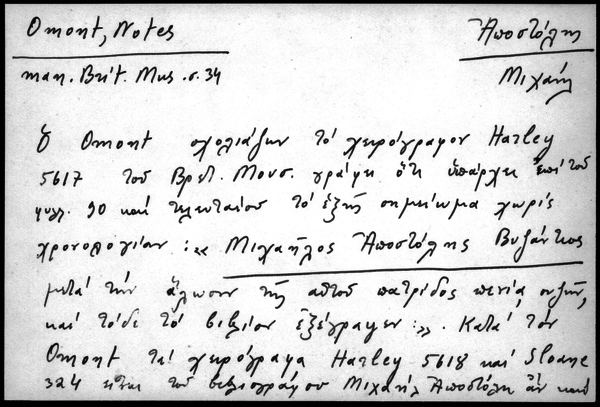 Omont, Notes
Ἀποστόλης
man. Brit. Mus. σ. 34
Μιχαήλ
Ὁ Omont σχολιάζων τό χειρόγραφον Harley
5617 τοῦ Βρετ. Μουσ. γράφει ὅτι ὑπάρχει ἐπί τοῦ
φυλλ. 90 καί τελευταίου τό ἑξῆς σημείωμα χωρίς
χρονολογίαν :« Μιχαῆλος Ἀποστόλης Βυζάντιος
μετά τήν ἅλωσιν τῆς αὐτοῦ πατρίδος πενίᾳ συζῶν,
καί τόδε τό βιβλίον ἐξέγραψεν :». Κατά τόν
Omont τά χειρόγραφα Harley 5618 καί Sloane
324 εἶναι τοῦ βιβλιογράφου Μιχαήλ Ἀποστόλη ἄν καί